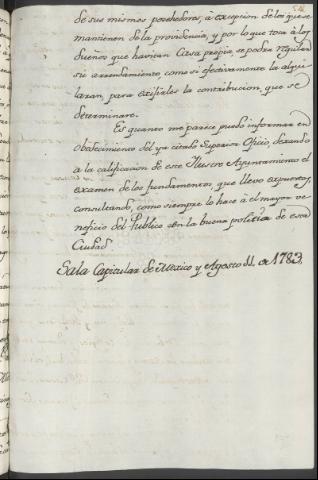 de sus mismos poehedores, à excepcion de los que se
mantienen de la providencia, y por lo que toca à los
dueños que havitan Casa propia, se podrà regular
su arrendamiento, como si efectivamente la alqui-
laran, para exijirles la contribucion, que se
determinare.
Es quanto me parece puedo informar en
obedecimiento del ya citado Superior Oficio, dexando
a la calificacion de este Ilustre Ayuntamiento el
examen de los fundamentos, que llevo expuestos,
consultando, como siempre lo hace à el mayor ve-
neficio del Publico con la buena politica de esta
Ciudad
Sala Capitular de Mexico y Agosto 11. de 1783.